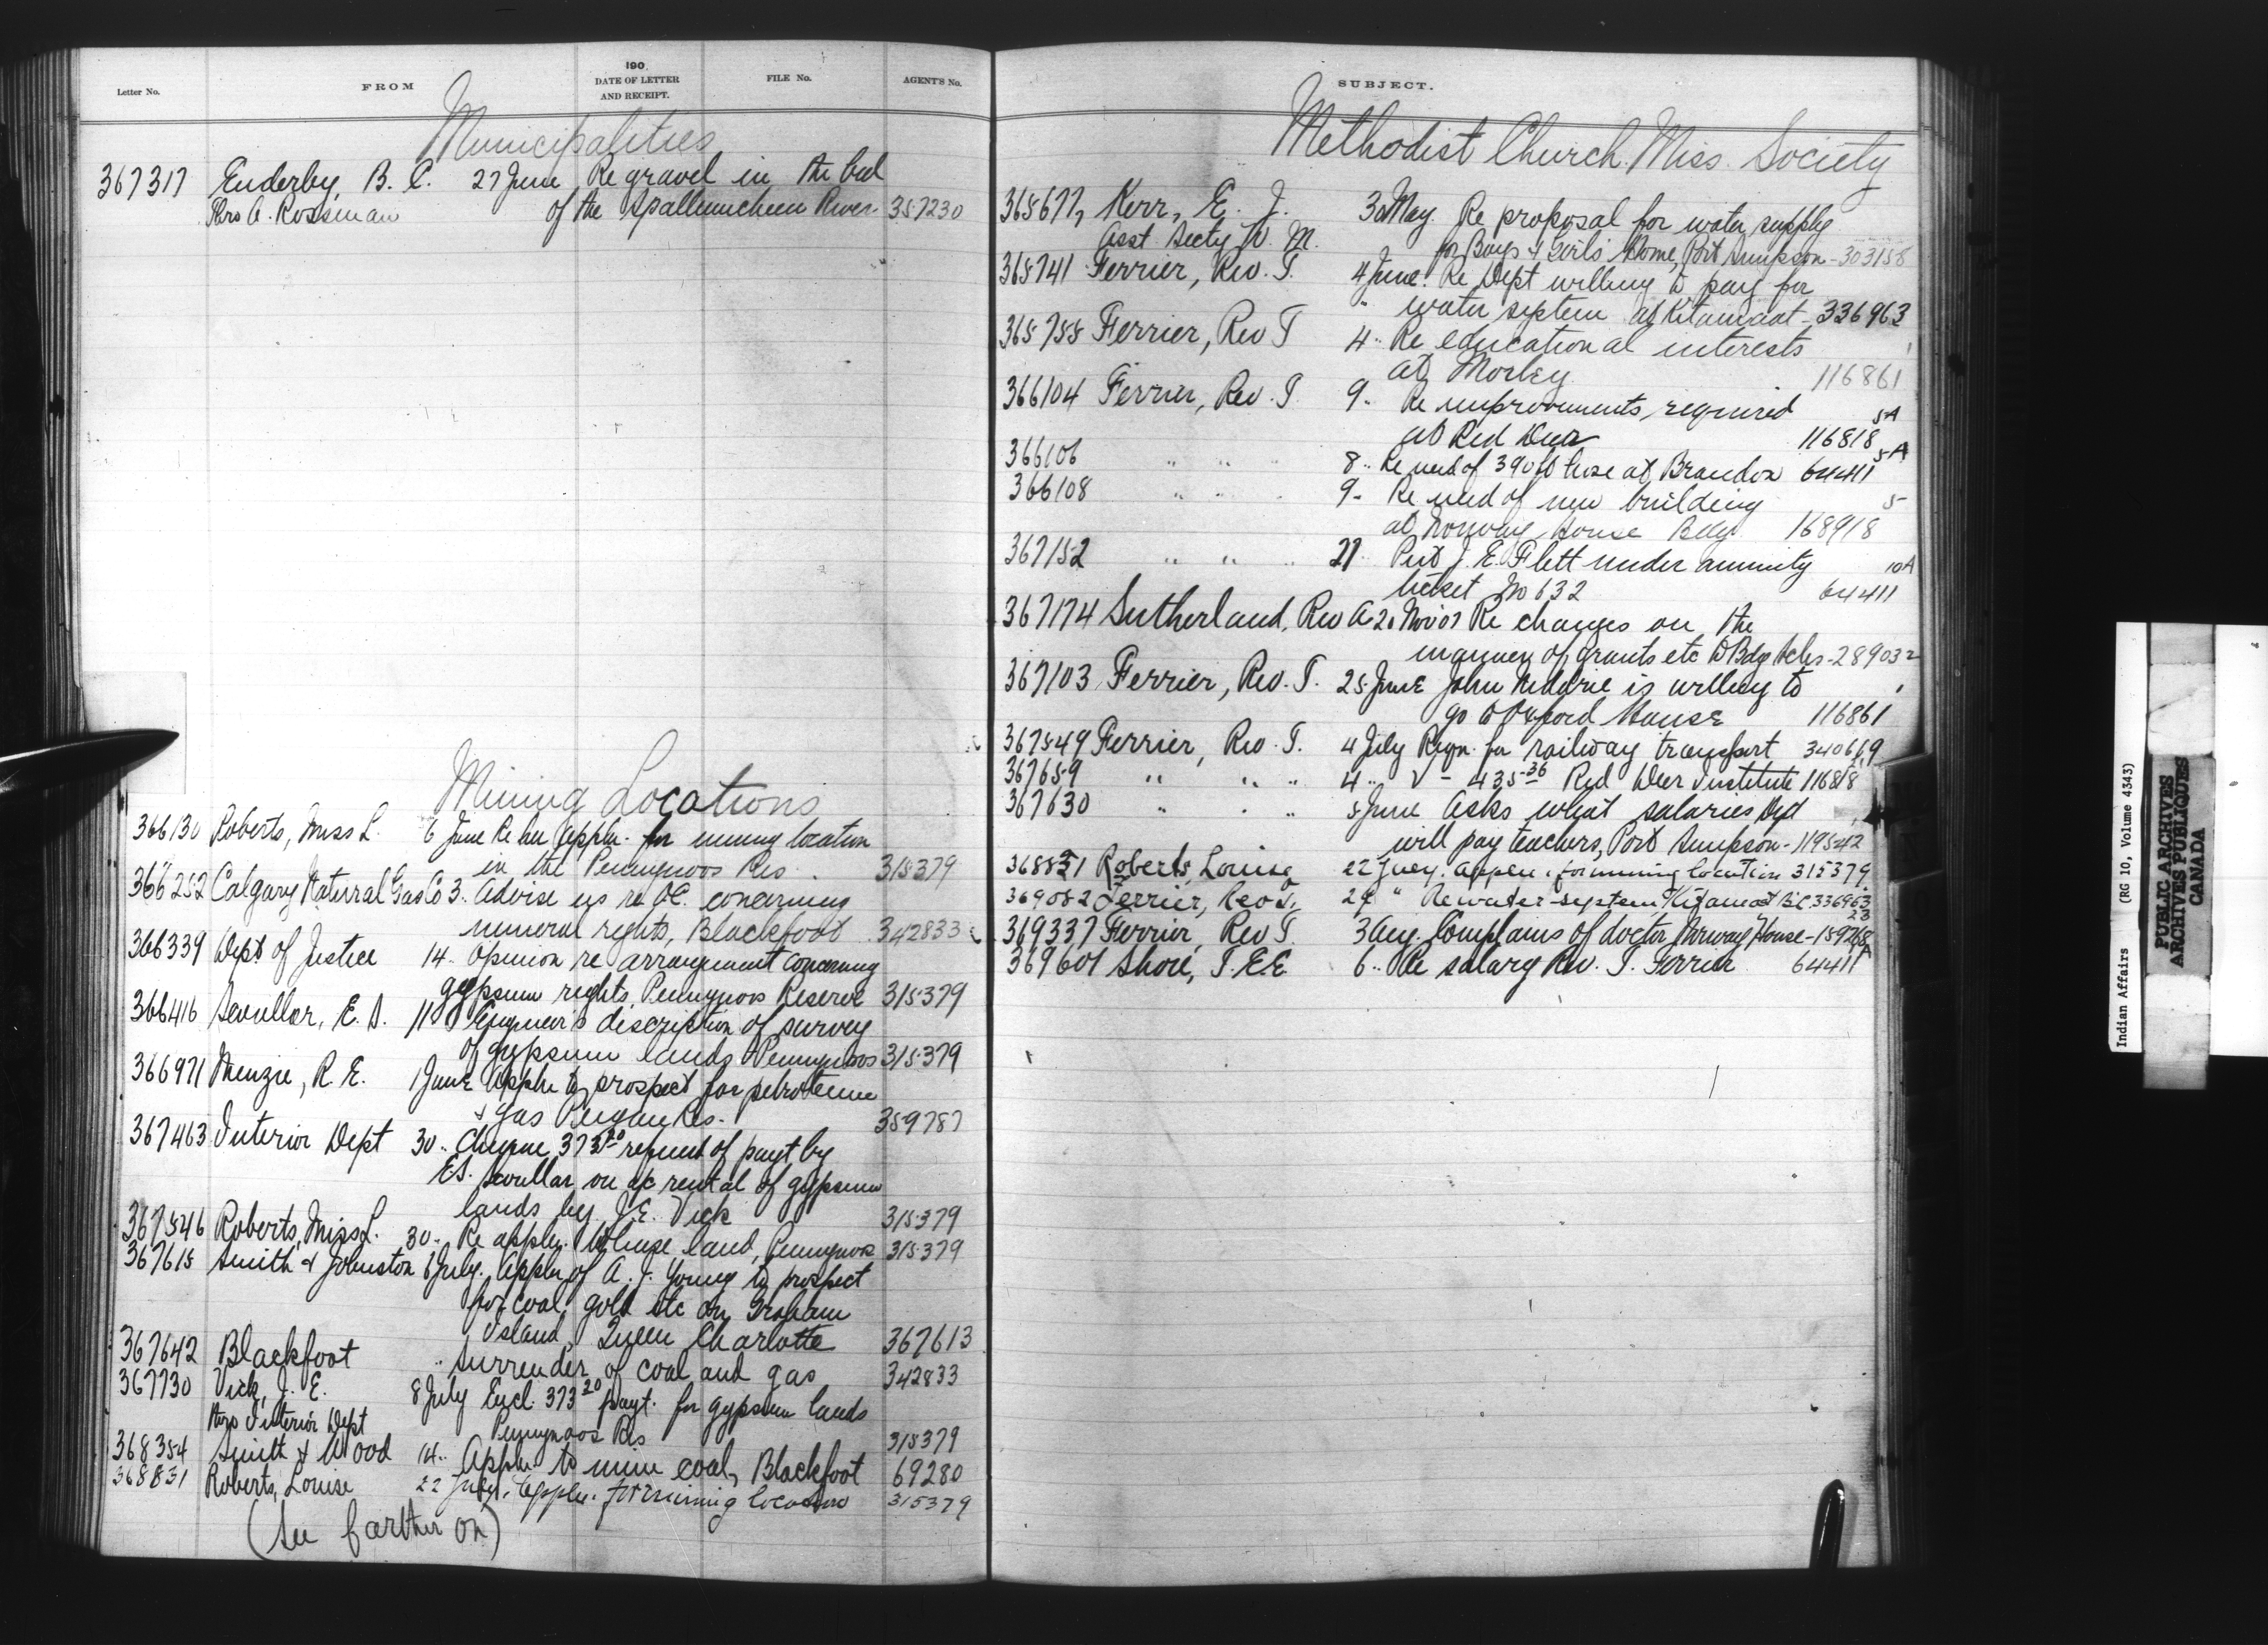 Letter No. FROM 190 DATE OF LETTER AND RECEIPT. FILE No. AGENT'S No.
Municipalities
367317 Enderby, B. C. 27 June Re gravel in the bed
Thro A. Rossman of the Spallumcheen River 357230
Mining Locations
366130 Roberts, Miss L. 6 June Re her Appln. for mining location
in the Res. 315379
366252 Calgary Natural Gas Co 3 .. Advise us re OC. concerning
mineral rights, Blackfoot 342833
366339 Dept of Justice 14 .. Opinion re arrangement concerning
gypsum rights, Reserve 315379
366416 Scoullar, E. S. 11 Engineer's discription of survey
of gypsum lands 315379
366971 Menzie, R. E. 1 June Appln to prospect for petroleum
& gas Peigan Res. 359787
367463 Interior Dept 30 .. Cheque 373.20 refund of payt by
E.S. Scoullar on a/c rental of gypsum
lands by J. E. Vick 315379
367546 Roberts, Miss L. 30 .. Re appln. to lease land, 315379
367615 Smith & Johnston 6 July. Appln of A. J. Young to prospect
for coal, gold etc on Graham
Island, Queen Charlotte 367613
367642 Blackfoot .. Surrender of coal and gas 342833
367730 Vick, J. E. 8 July Encl. 373 20 payt. for gypsum lands
thro Interior Dept Res 315379
368354 Smith & Wood 14 .. Appln to mine coal, Blackfoot 69280
368831 Roberts, Louise 22 July. Appln. for mining location 315379
(See farther on)
SUBJECT.
Methodist Church Miss. Society
365677, Kerr, E. J. 30 May. Re proposal for water supply
Asst Secty W. M. for Boys & Girls Home, Port Simpson - 303158
365741 Ferrier, Rev. T. 4 June. Re Dept willing to pay for
water system at Kitamaat - 336963
365755 Ferrier, Rev T 4 .. Re educational interests
at Morley 116861
366104 Ferrier, Rev. T. 9 .. Re improvements, required 5A
at Red Deer 116818
366106 .. .. .. 8 .. Re need of 390 ft hose at Brandon 64411 5A
366108 .. .. .. 9 .. Re need of new building 5
at Norway House Bdg. 168918
367152 .. .. .. 21 Put J. E. Flett under annuity 10A
ticket No 632 64411
367174 Sutherland, Rev A 20 Nov 07 Re changes on the
manner of grants etc to Bdg Schs - 28903 2
367103 Ferrier, Rev. T. 25 June John Niddrie is willing to
go to Oxford House 116861
367549 Ferrier, Rev. T. 4 July Reqn. for railway transport 340669
367659 .. .. .. 4 .. V - 435.36 Red Deer Institute 116818
367630 .. . .. 5 June Asks what salaries Dept
will pay teachers, Port Simpson - 119542
368831 Roberts, Louise 22 July. Appln. for mining location 315379
369082 Ferrier, Rev T. 29 " Re water system, Kitamaat B.C. 336963
23
369337 Ferrier, Rev T. 3 Aug. Complains of doctor Norway House - 159268
369601 Shore, T. E. E. 6 .. Re salary Rev. T. Ferrier 64411 A
Indian Affairs (RG 10, Volume 4343)
PUBLIC ARCHIVES
ARCHIVES PUBLIQUES
CANADA